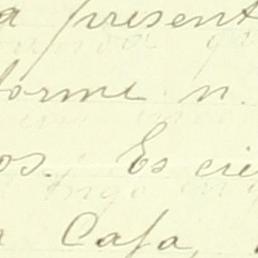 a present
forme n.
os. Es cie
a Casa,